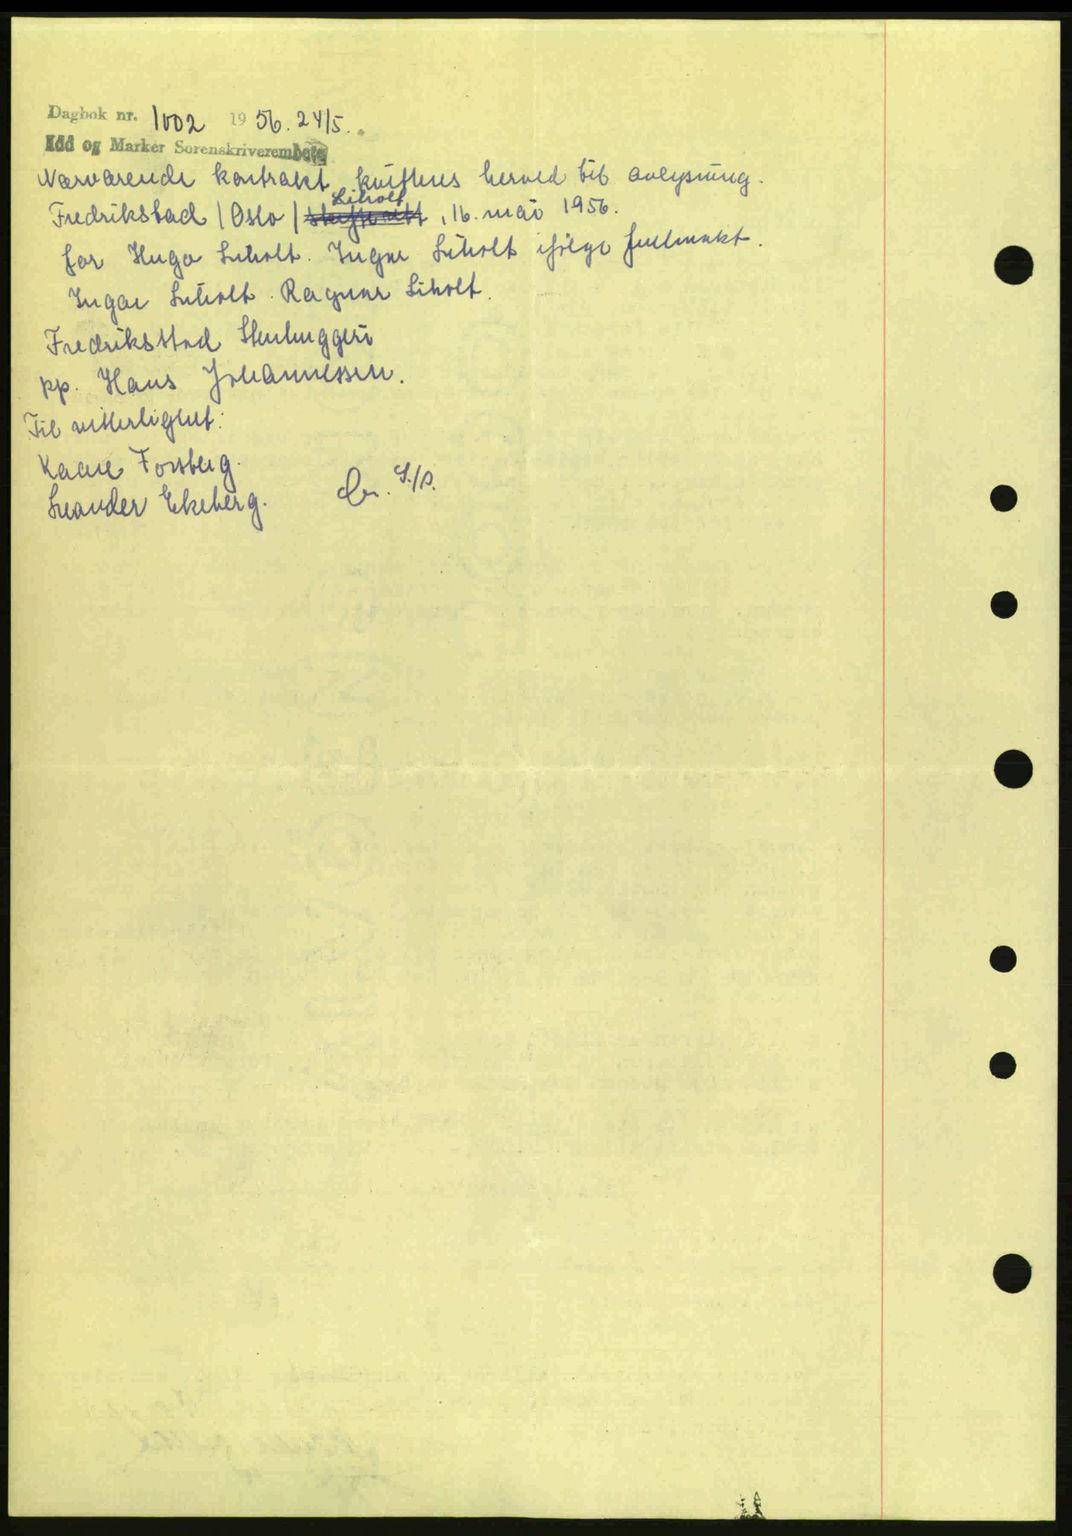 Dagbok nr. 1002 1956. 24/5.
Idd og Marker Sorenskriverembete
Nærværende kontrakt kvitteres herved til avlysning.
Liholt
Fredrikstad / Oslo / , 16. mai 1956.
for Hugo Liholt. Ingar Liholt ifølge fullmakt.
Ingar Liholt. Ragnar Liholt.
Fredrikstad Stenhuggeri
pp. Hans Johannessen.
Til vitterlighet:
Kaare Forsberg.
Leander Ekeberg.